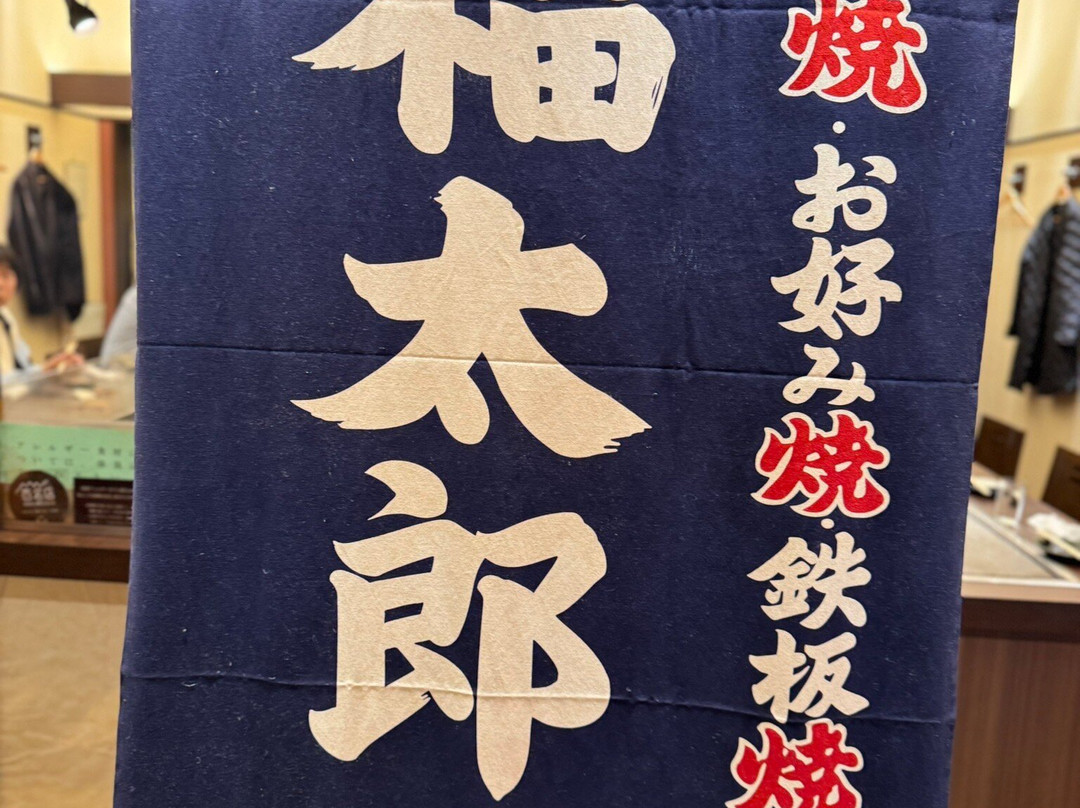 焼・お好み焼・鉄板焼
福太郎